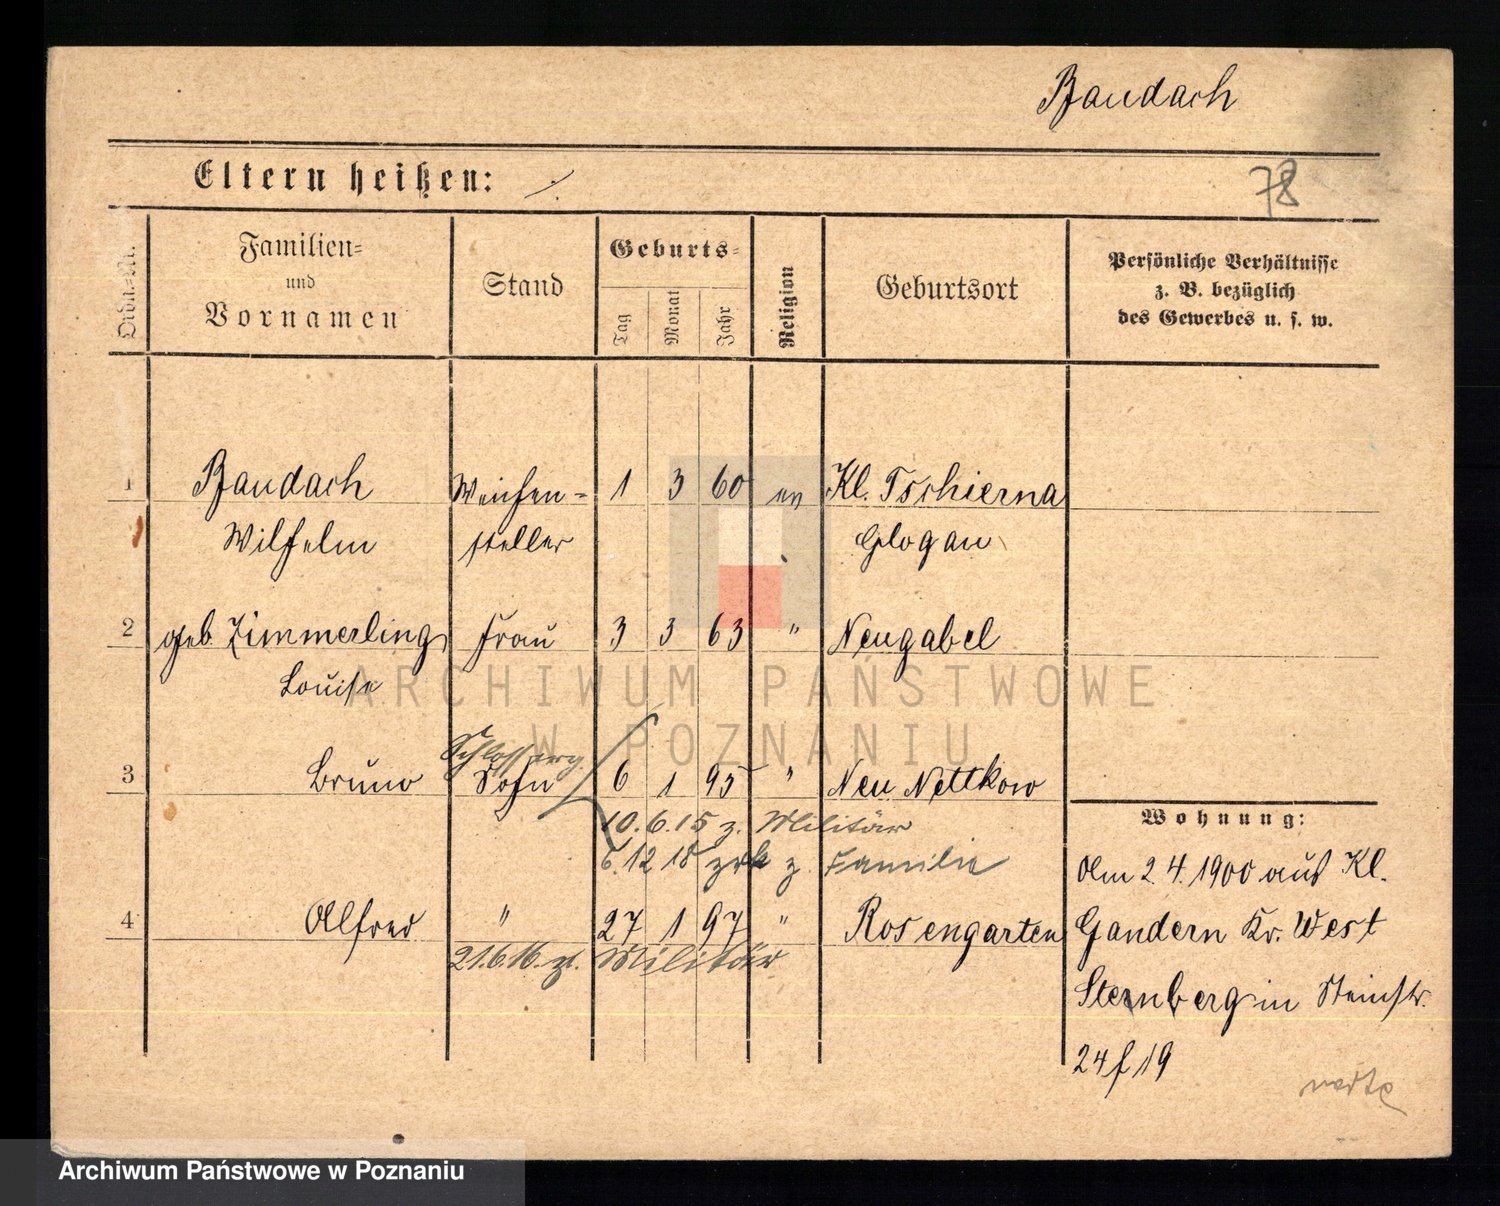 Baudach
Eltern heißen: ·/.
78
Ordn.-Nr.
Familien-
und
Vornamen
Stand
Geburts-
Tag
Monat
Jahr
Religion
Geburtsort
Persönliche Verhältnisse
z. B. bezüglich
des Gewerbes u. s. w.
1 Baudach Weichen- 1 3 60 ev Kl. Tschierna
Wilhelm steller Glogau
2 geb Zimmerling Frau 3 3 63 " Neugabel
Louise
Schlosserg.
3 Bruno Sohn 6 1 95 " Neu Nettkow
10.6.15 z. Militär
6.12 18 zrk z. Familie
4 Alfred " 27 1 97 " Rosengarten
21.6.16. z. Militär
Wohnung:
Am 2.4.1900 aus Kl.
Gandern Kr. West
Sternberg in Steinstr.
24 f 19
ARCHIWUM PAŃSTWOWE
W POZNANIU
Archiwum Państwowe w Poznaniu